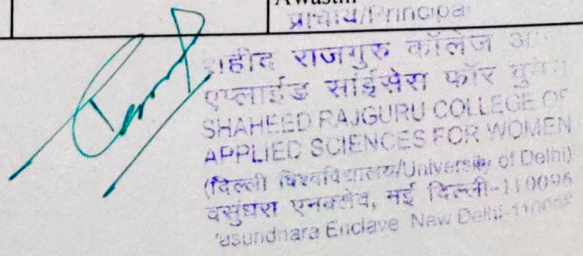 Awasthi
प्राचार्य/Principal
शहीद राजगुरु कॉलेज ऑफ
एप्लाईड साईसेस फॉर वुमेन
SHAHEED RAJGURU COLLEGE OF
APPLIED SCIENCES FOR WOMEN
(दिल्ली विश्वविद्यालय/University of Delhi)
वसुंधरा एनक्लेव, नई दिल्ली-110096
Vasundhara Enclave New Delhi-110096